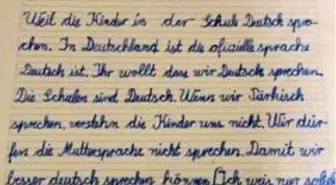 Weil die Kinder in der Schule Deutsch spre-
chen. In Deutschland ist die ofizielle sprache
Deutsch ist. Ihr wollt dass wir Deutsch sprechen.
Die Schulen sind Deutsch. Wenn wir Türkisch
sprechen, verstehn die Kinder uns nicht. Wir dür-
fen die Muttersprache nicht sprechen. Damit wir
besser deutsch sprechen können. Ich weis nur